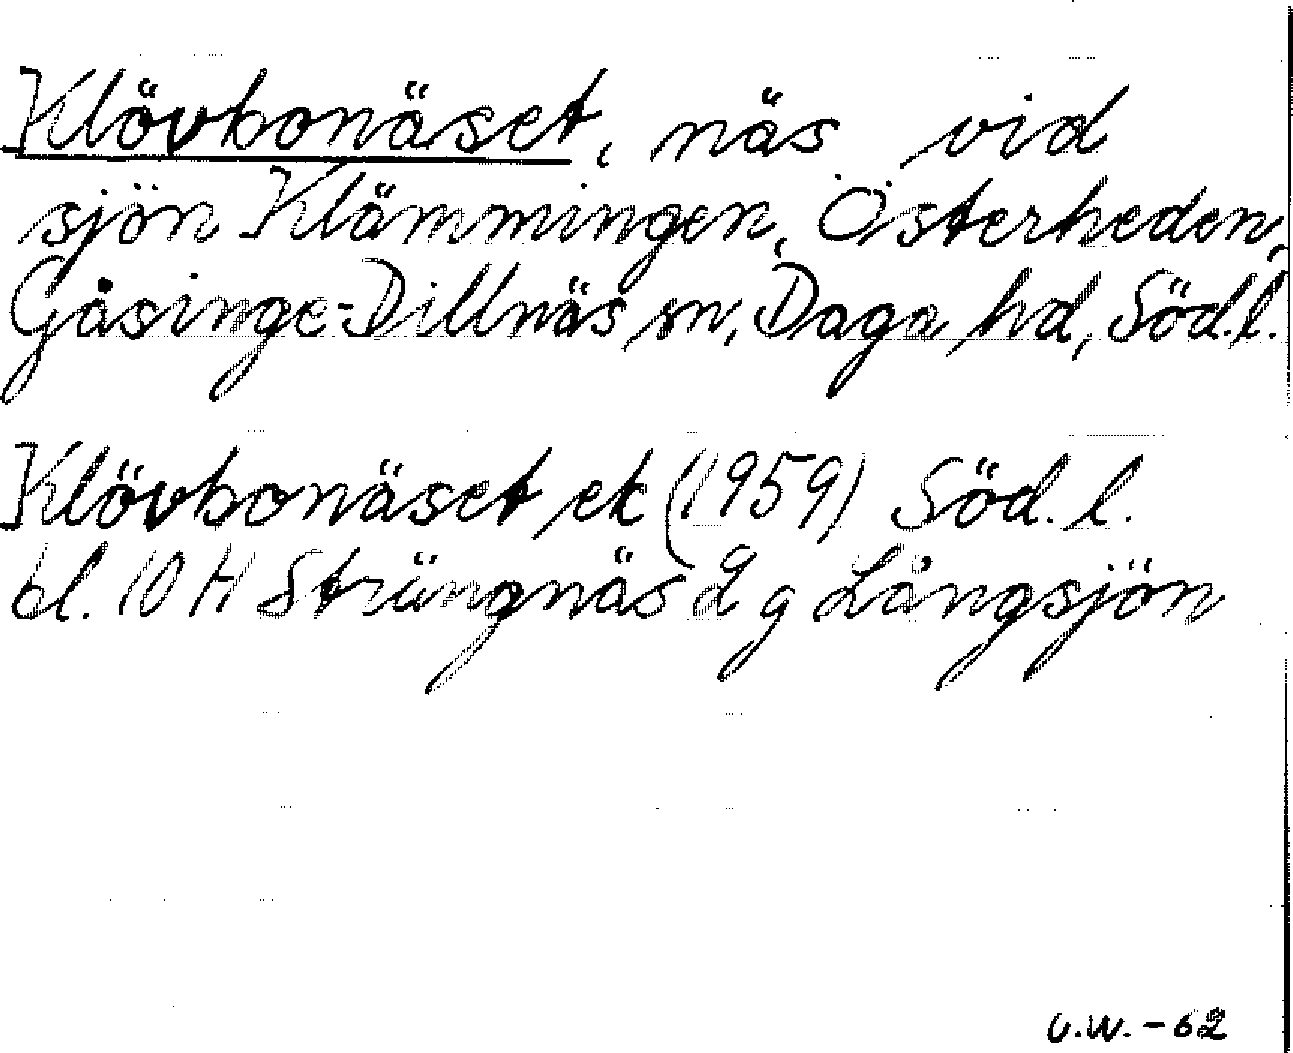 Klövbonäset, näs vid
sjön Klämmingen, Österheden,
Gåsinge-Dillnäs sn, Daga hd, Söd.l.
Klövbonäset ek (1959) Söd. l.
bl. 10 H Strängnäs 2 g Långsjön
U.W. - 62